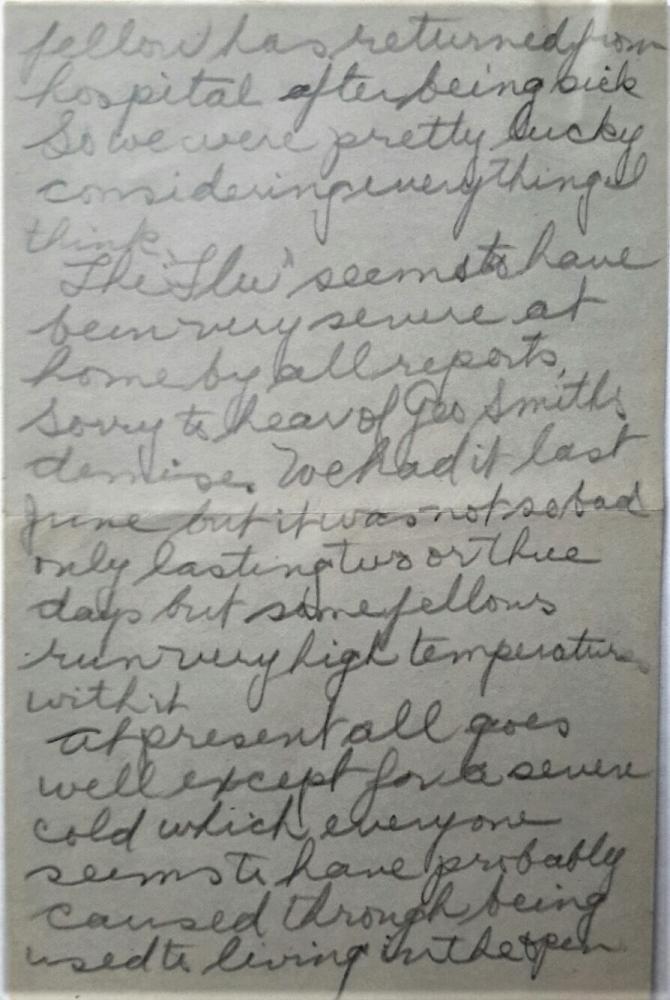 fellow has returned from
hospital after being sick
So we were pretty lucky
considering everything I
think.
The 'Flu' seems to have
been very severe at
home by all reports,
Sorry to hear of Geo Smiths
demise. We had it last
June but it was not so bad
only lasting two or three
days but some fellows
run very high temperatures
with it
At present all goes
well except for a severe
cold which everyone
seems to have probably
caused through being
used to living in the open